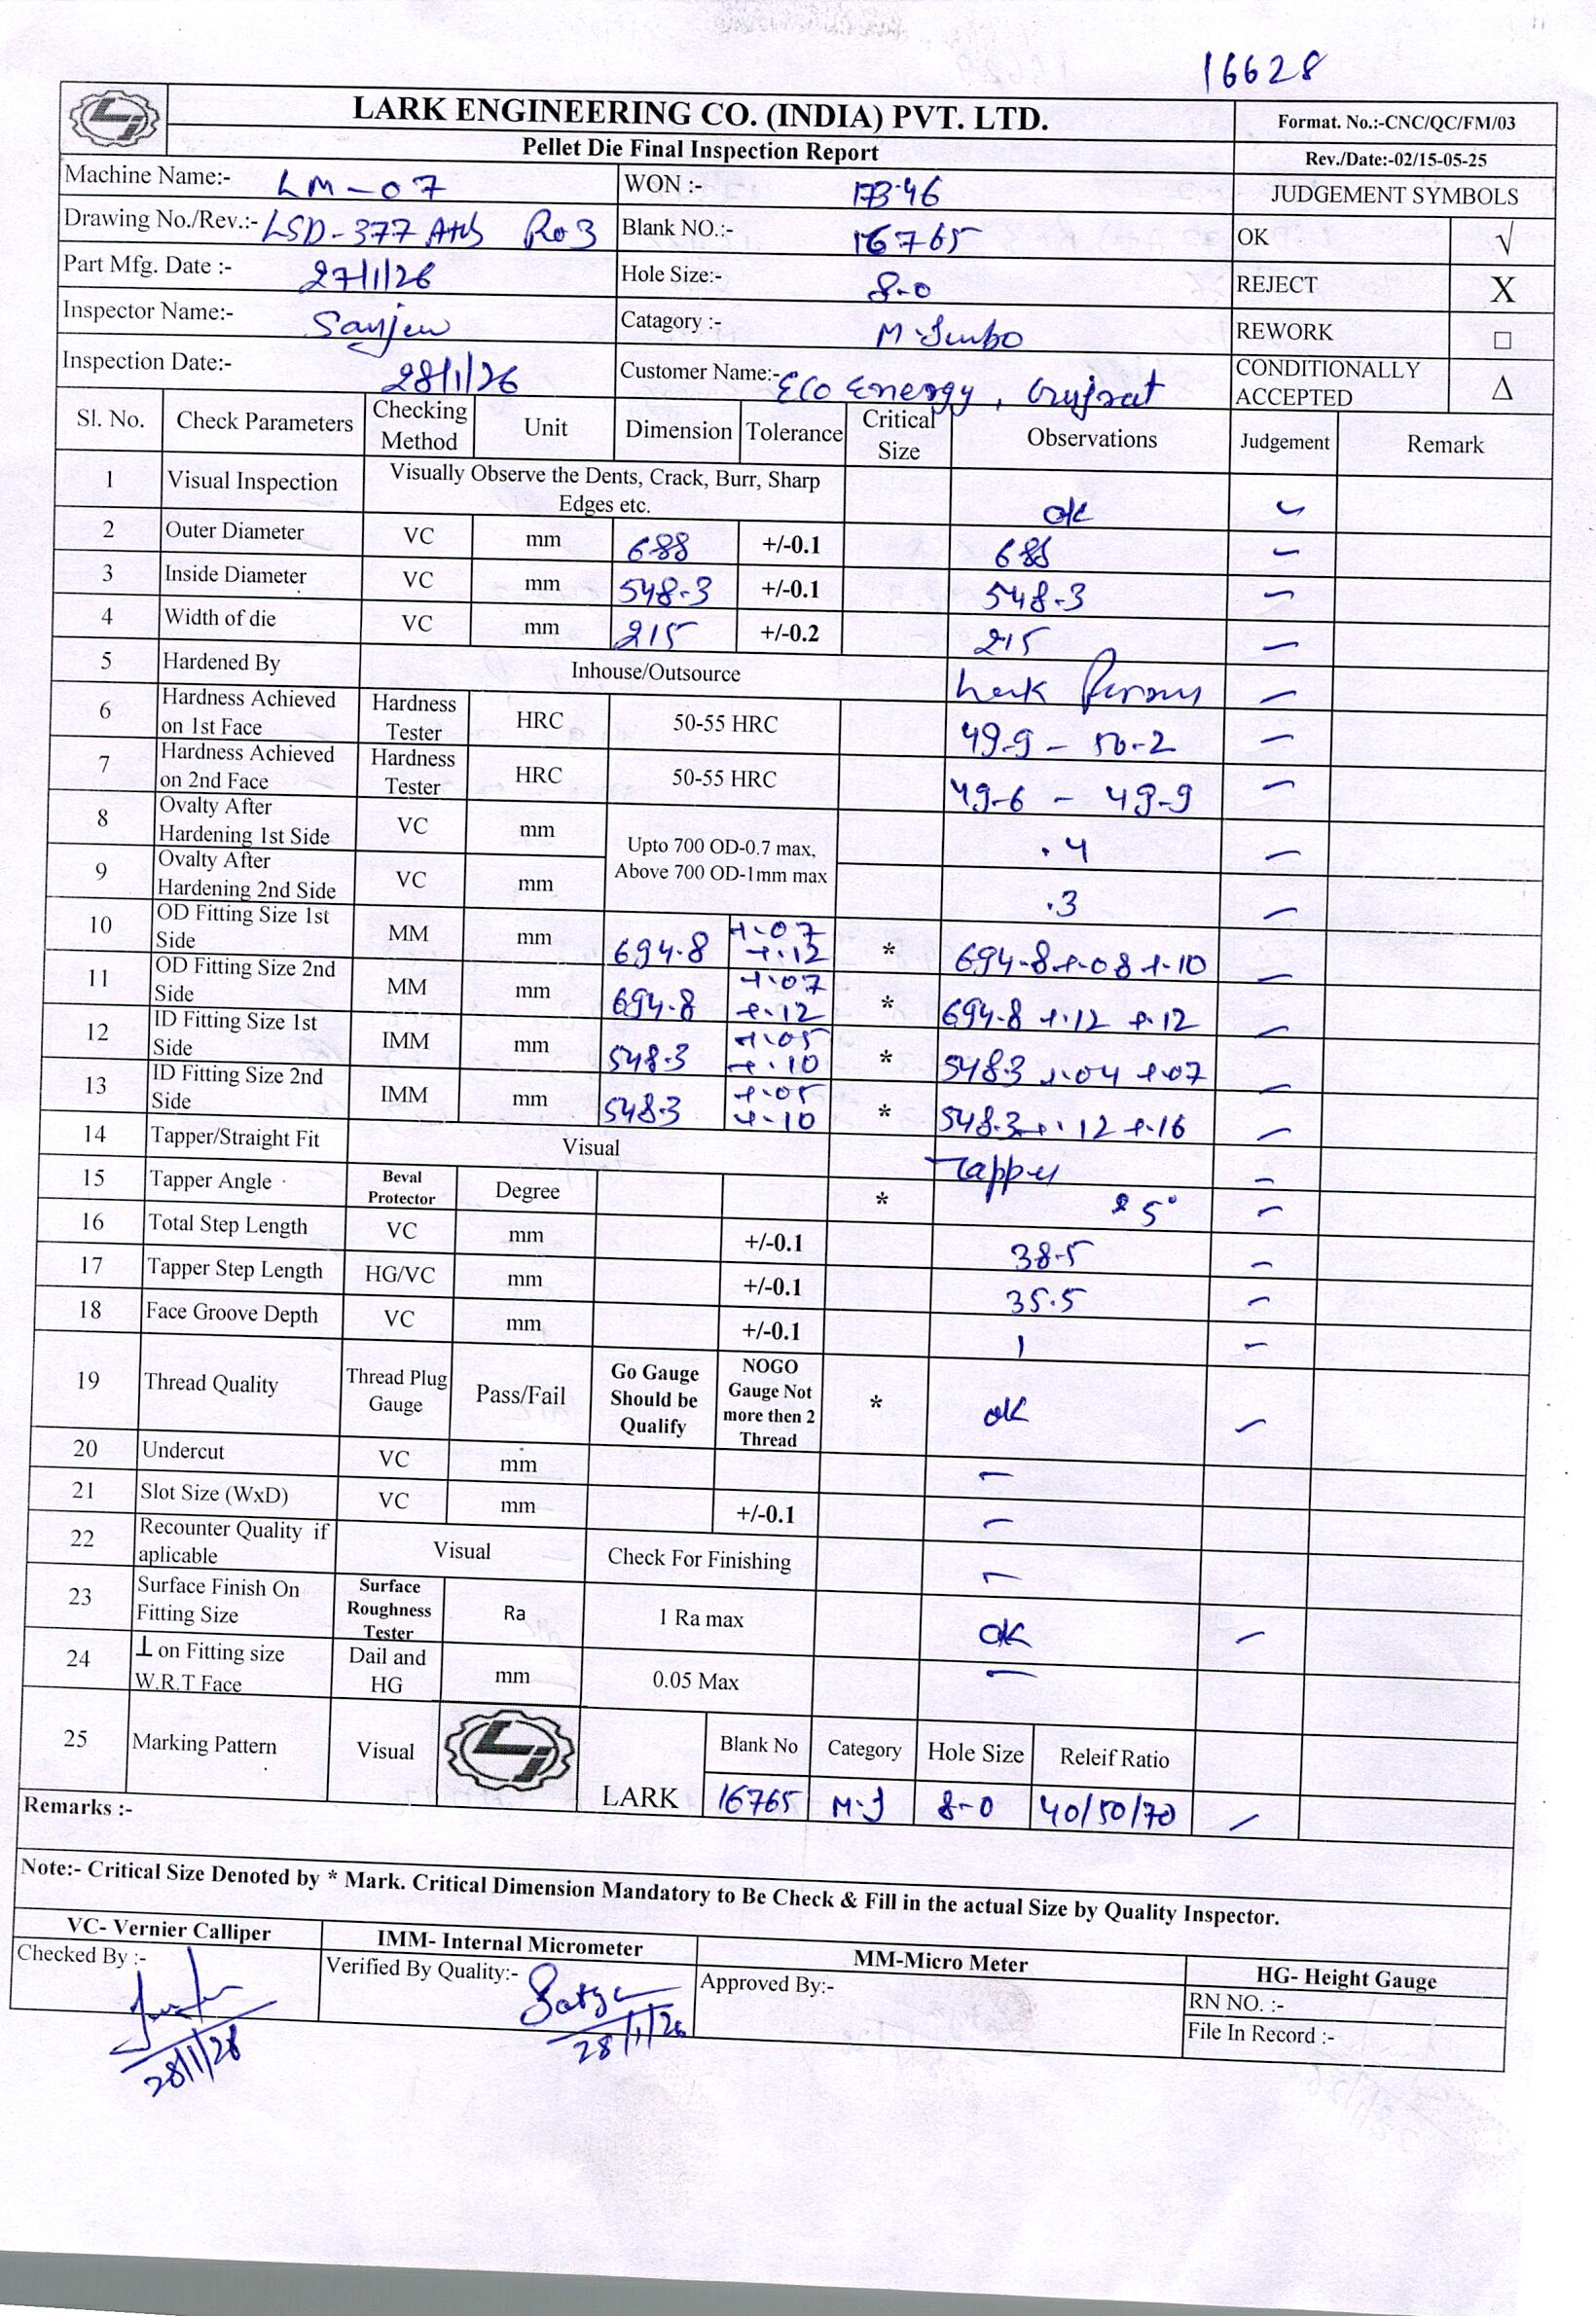 16628
LARK ENGINEERING CO. (INDIA) PVT. LTD.
Format. No.:-CNC/QC/FM/03
Pellet Die Final Inspection Report
Rev./Date:-02/15-05-25
Machine Name:- LM-07 WON :- 173-46 JUDGEMENT SYMBOLS
Drawing No./Rev.:- LSD-377 R03 Blank NO.:- 16765 OK √
Part Mfg. Date :- 27/1/26 Hole Size:- 8-0 REJECT X
Inspector Name:- Sanjeev Catagory :- M-Jumbo REWORK □
Inspection Date:- 28/1/26 Customer Name:- Eco Energy, Gujrat CONDITIONALLY ACCEPTED Δ
Sl. No. Check Parameters Checking Method Unit Dimension Tolerance Critical Size Observations Judgement Remark
1 Visual Inspection Visually Observe the Dents, Crack, Burr, Sharp Edges etc. ok
2 Outer Diameter VC mm 688 +/-0.1 688
3 Inside Diameter VC mm 548-3 +/-0.1 548-3
4 Width of die VC mm 215 +/-0.2 215
5 Hardened By Inhouse/Outsource Lark
6 Hardness Achieved on 1st Face Hardness Tester HRC 50-55 HRC 49-9 - 50-2
7 Hardness Achieved on 2nd Face Hardness Tester HRC 50-55 HRC 49-6 - 49-9
8 Ovalty After Hardening 1st Side VC mm Upto 700 OD-0.7 max, Above 700 OD-1mm max .4
9 Ovalty After Hardening 2nd Side VC mm .3
10 OD Fitting Size 1st Side MM mm 694-8 +.07 +.12 * 694-8 +.08 +.10
11 OD Fitting Size 2nd Side MM mm 694-8 +.07 +.12 * 694-8 +.12 +.12
12 ID Fitting Size 1st Side IMM mm 548-3 +.05 +.10 * 548-3 +.04 +.07
13 ID Fitting Size 2nd Side IMM mm 548-3 +.05 +.10 * 548-3 +.12 +.16
14 Tapper/Straight Fit Visual Tapper
15 Tapper Angle Beval Protector Degree * 5°
16 Total Step Length VC mm +/-0.1 38-5
17 Tapper Step Length HG/VC mm +/-0.1 35.5
18 Face Groove Depth VC mm +/-0.1 1
19 Thread Quality Thread Plug Gauge Pass/Fail Go Gauge Should be Qualify NOGO Gauge Not more then 2 Thread * ok
20 Undercut VC mm -
21 Slot Size (WxD) VC mm +/-0.1 -
22 Recounter Quality if aplicable Visual Check For Finishing -
23 Surface Finish On Fitting Size Surface Roughness Tester Ra 1 Ra max ok
24 ⊥ on Fitting size W.R.T Face Dail and HG mm 0.05 Max -
25 Marking Pattern Visual LARK Blank No Category Hole Size Releif Ratio
16765 M-J 8-0 40/50/70
Remarks :-
Note:- Critical Size Denoted by * Mark. Critical Dimension Mandatory to Be Check & Fill in the actual Size by Quality Inspector.
VC- Vernier Calliper IMM- Internal Micrometer MM-Micro Meter HG- Height Gauge
Checked By :- Verified By Quality:- Approved By:- RN NO. :-
File In Record :-
28/1/26 28/1/26